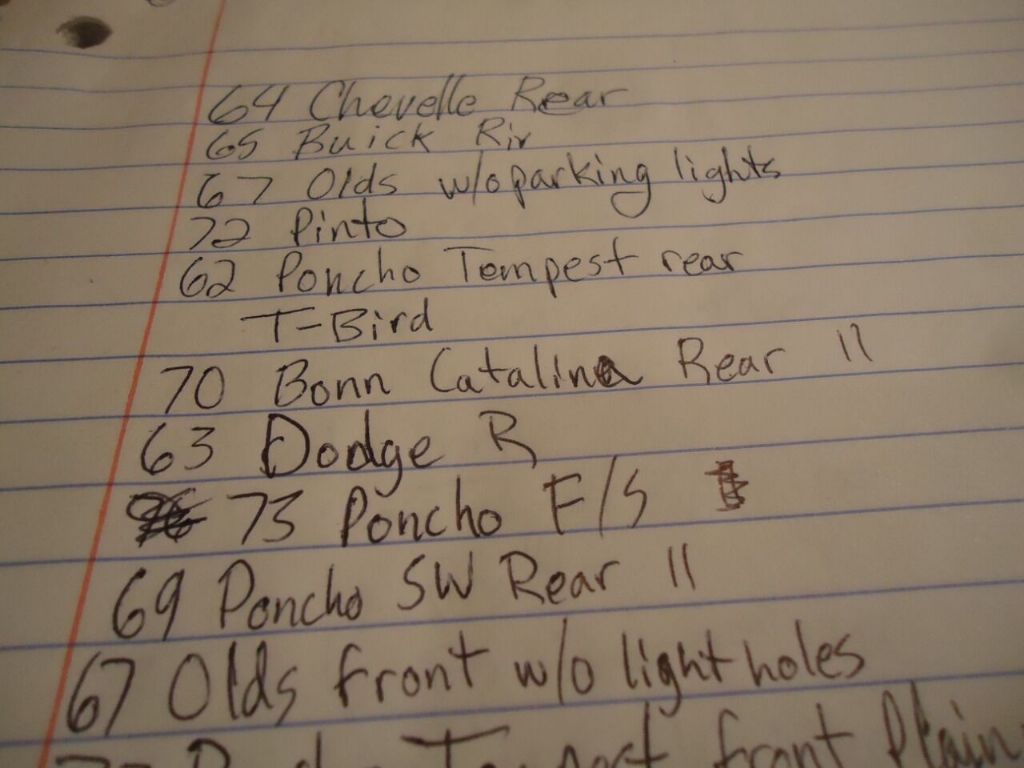 64 Chevelle Rear
65 Buick Riv
67 Olds w/o parking lights
72 Pinto
62 Poncho Tempest rear
T-Bird
70 Bonn Catalina Rear 11
63 Dodge R
73 Poncho F/S
69 Poncho SW Rear 11
67 Olds front w/o light holes
front Plain